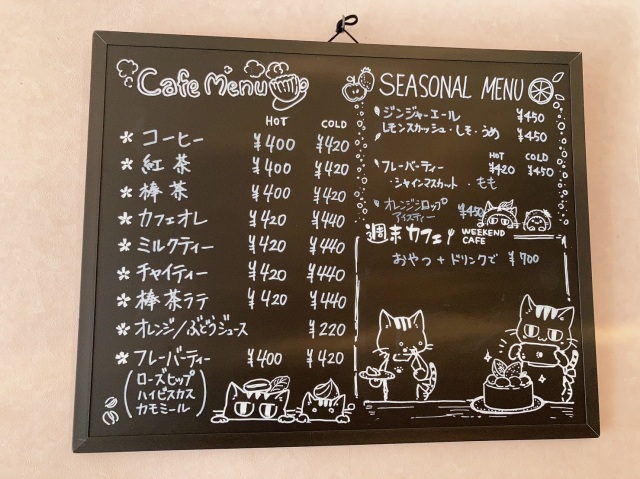 Cafe Menu
HOT COLD
コーヒー ¥400 ¥420
紅茶 ¥400 ¥420
棒茶 ¥400 ¥420
カフェオレ ¥420 ¥440
ミルクティー ¥420 ¥440
チャイティー ¥420 ¥440
棒茶ラテ ¥420 ¥440
オレンジ/ぶどうジュース ¥220
フレーバーティー ¥400 ¥420
(ローズヒップ
ハイビスカス
カモミール)
SEASONAL MENU
ジンジャーエール ¥450
レモンスカッシュ・しそ・うめ ¥450
HOT COLD
フレーバーティー ¥420 ¥450
・シャインマスカット ・もも
オレンジシロップ
アイスティー ¥450
週末カフェ WEEKEND
CAFE
おやつ+ドリンクで ¥700